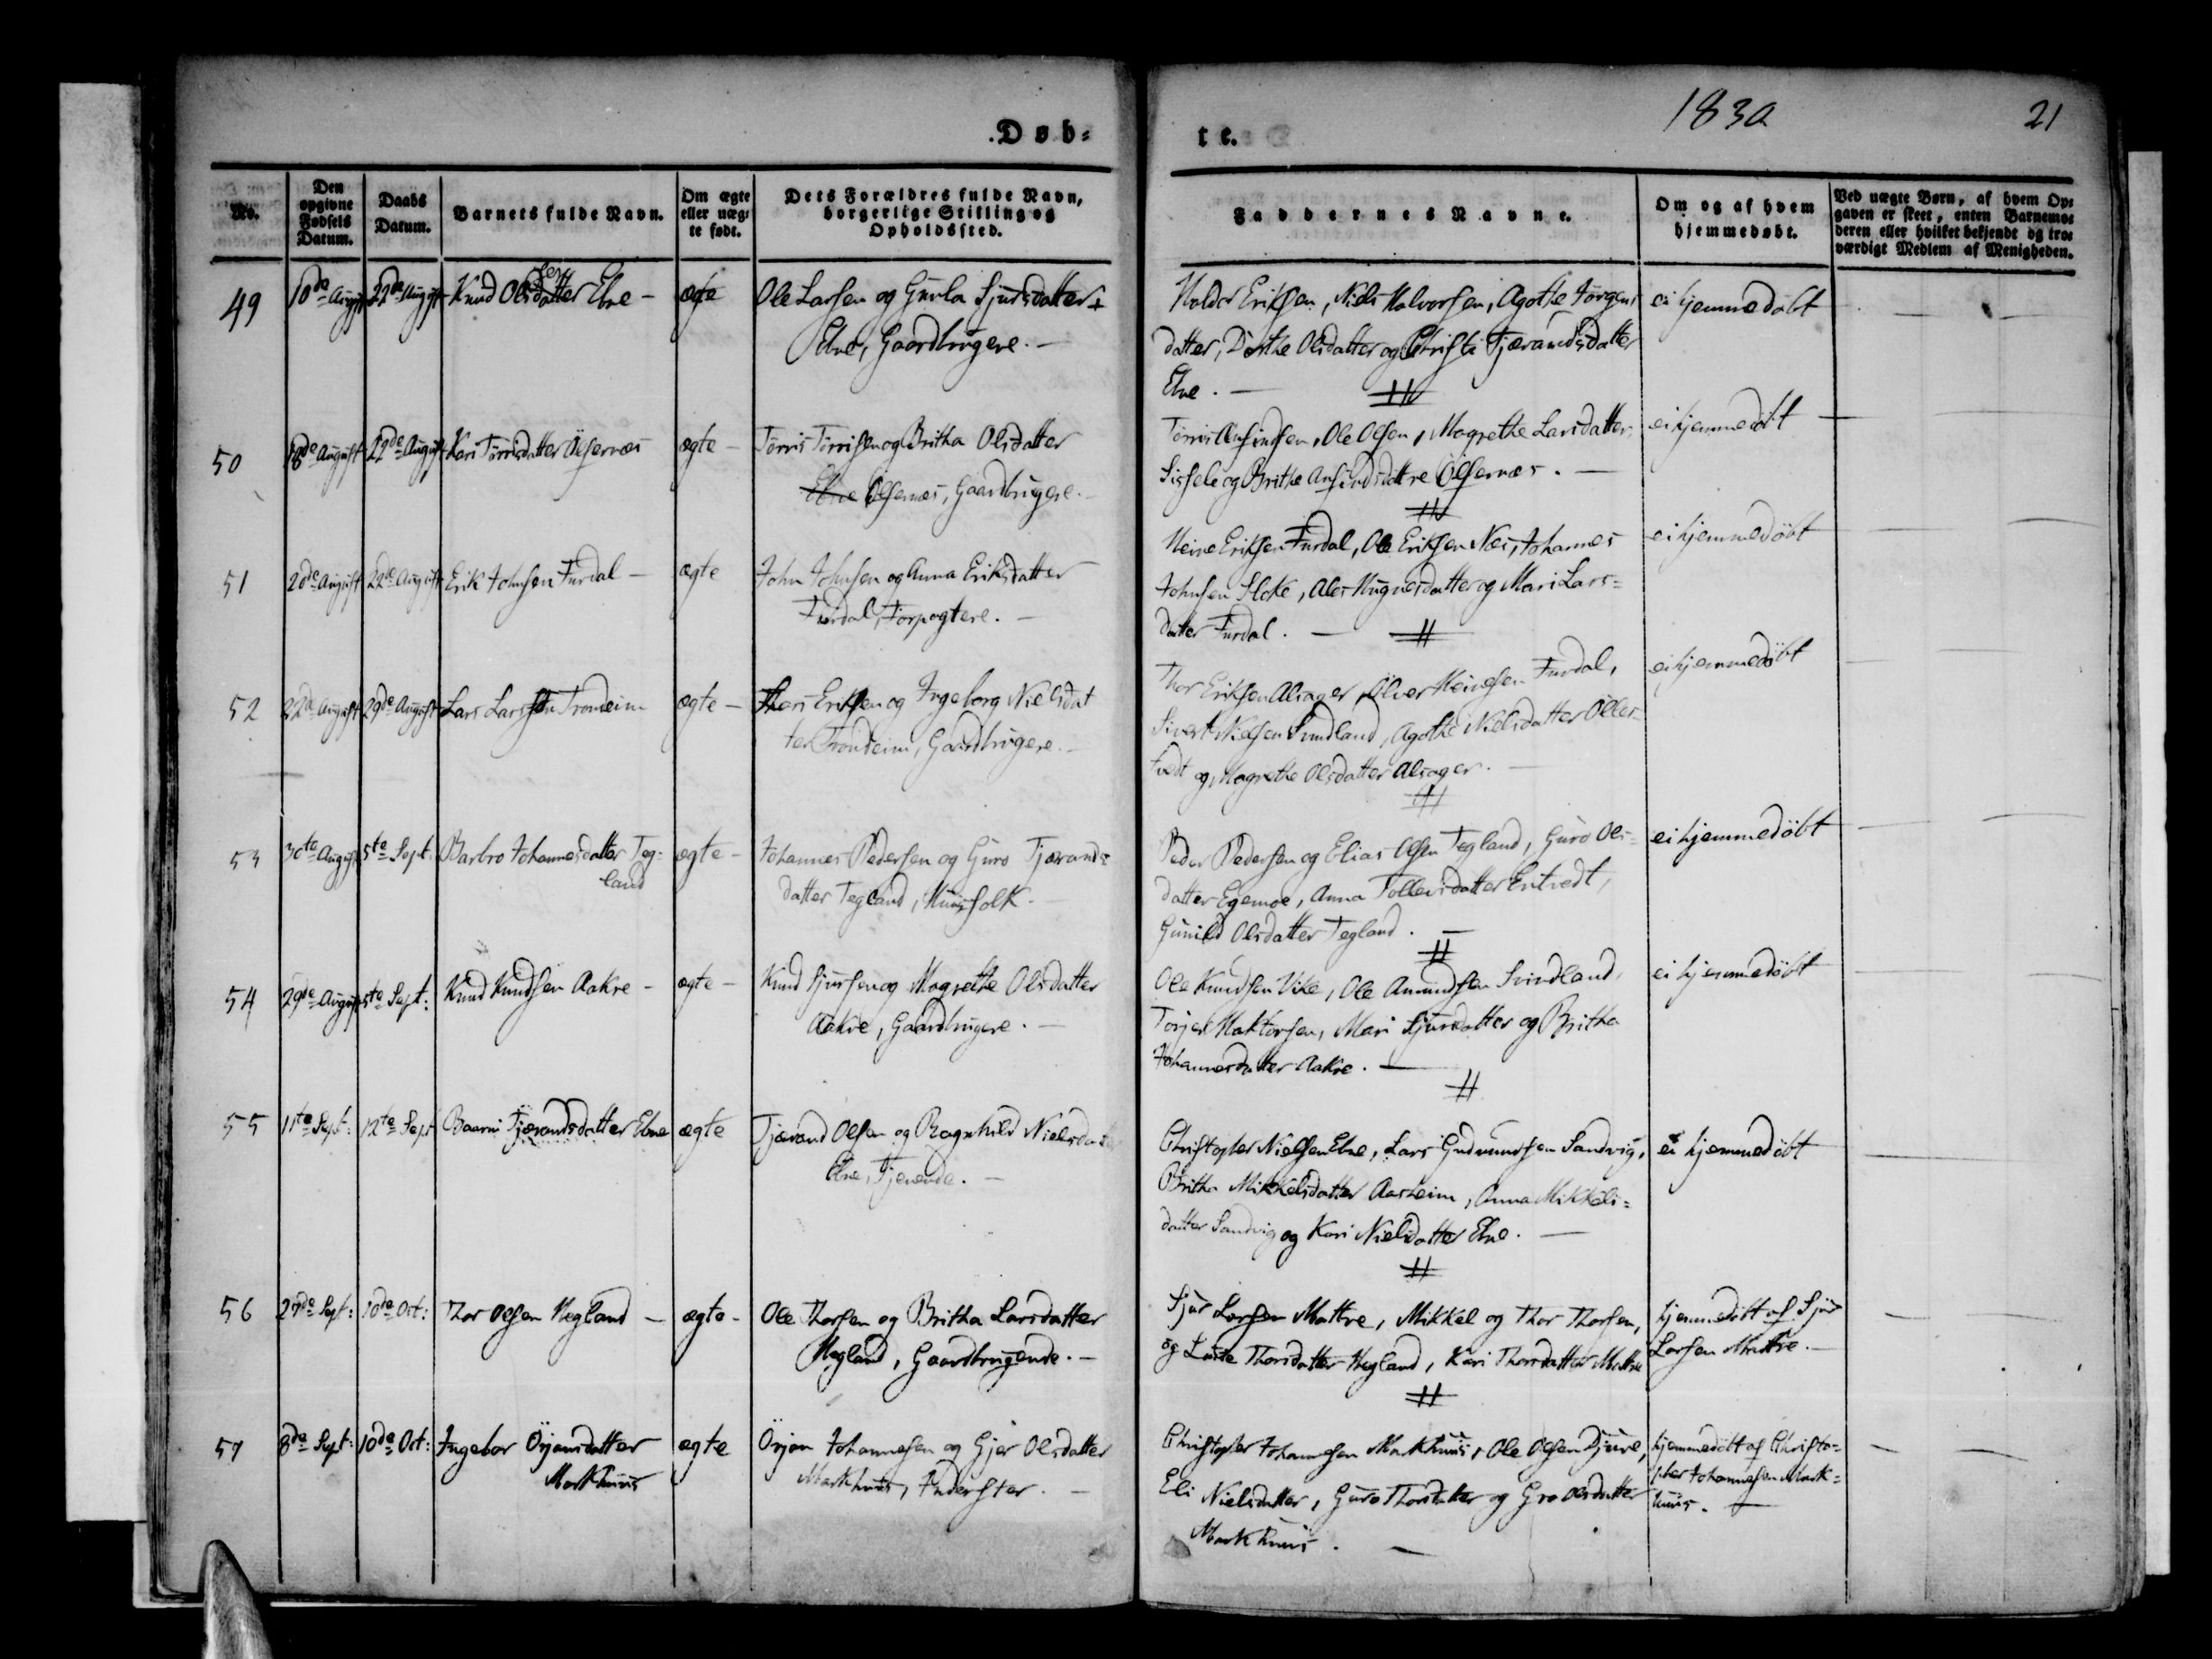 Døb-
te.
1830
21
No.
Den opgivne Fødsels Datum.
Daabs Datum.
Barnets fulde Navn.
Om ægte eller uægte født.
Dets Forældres fulde Navn, borgerlige Stilling og Opholdssted.
Faddernes Navne.
Om og af hvem hjemmedøbt.
Ved uægte Børn, af hvem Opgaven er skeet, enten Barnemoderen eller hvilket bekjendt og troværdigt Medlem af Menigheden.
49 10de August 22de August Knud Olsen Ebne - ægte
Ole Larsen og Gunla Sjursdatter
Ebne, Gaardbrugere. -
Haldor Eriksen, Niels Halvorsen, Agathe Jørgens
datter, Dorthe Olsdatter og Christi Tjærandsdatter
Ebne. -
ei hjemmedøbt
50 18de August 29de August Kari Tørrisdatter Ølfernæs ægte -
Tørris Tørrisen og Britha Olsdatter
Ebne Ølfernæs, Gaardbrugere.
Tørris Anfindsen, Ole Olsen, Magrethe Larsdatter,
Sissele og Brithe Anfindsdattre Ølfernæs. -
ei hjemmedøbt
51 20de August 22de August Erik Johnsen Furdal - ægte
John Johnsen og Anna Eriksdatter
Furdal, Forpagtere. -
Heine Eriksen Furdal, Ole Eriksen Næs, Johannes
Johnsen , Ales Magnesdatter og Mari Lars-
datter Furdal. -
ei hjemmedøbt
52 22de August 29de August Lars Larssen Trondeim ægte -
Lars Eriksen og Ingeborg Nielsdat
ter Trondeim, Gaardbrugere. -
Thor Eriksen Alsager, Ølver Heinesen Furdal,
Sivert Nielsen Svindland, Agathe Nielsdatter Øller-
tvedt og Magrethe Olsdatter Alsager. -
ei hjemmedøbt
53 30te August 5te Sept. Barbro Johannesdatter Teg- ægte -
land
Johannes Pedersen og Guro Tjærands
datter Tegland, Huusfolk.
Peder Pedersen og Elias Olsen Tegland, Guro Ols-
datter Egemoe, Anna Tollevsdatter Entvedt,
Gunild Olsdatter Tegland. -
ei hjemmedøbt
54 29de August 5te Sept: Knud Knudsen Aakre - ægte -
Knud Sjursen og Magrethe Olsdatter
Aakre, Gaardbrugere. -
Ole Knudsen Vike, Ole Amundsen Svindland,
Torjer Haktorsen, Mari Sjursdatter og Britha
Johannesdatter Aakre. -
ei hjemmedøbt
55 11te Sept: 12te Sept Baarni Tjærandsdatter Ebne ægte
Tjærand Olsen og Ragnhild Nielsdat
Ebne, Tjenende. -
Christopher Nielsen Ebne, Lars Gudmundsen Sandvig,
Britha Mikkelsdatter Aasheim, Anna Mikkels-
datter Sandvig og Kari Nielsdatter Ebne. -
ei hjemmedøbt
56 27de Sept: 10de Oct: Thor Olsen Hegland - ægte -
Ole Thorsen og Britha Larsdatter
Hegland, Gaardbrugende. -
Sjur Larsen Mattre, Mikkel og Thor Thorsen,
og Thorsdatter Hegland, Kari Thorsdatter Mattre
hjemmedøbt af Sjur
Larsen Mattre. -
57 8de Sept: 10de Oct: Ingebor Örjansdatter ægte
Markhuus
Örjan Johannesen og Gjer Olsdatter
Markhuus, Inderster. -
Christopher Johannesen Markhuus, Ole Olsen Djuve,
Eli Nielsdatter, Guro Thorsdatter og Gro Olsdatter
Markhuus. -
hjemmedøbt af Christo-
pher Johannesen Mark-
huus. -